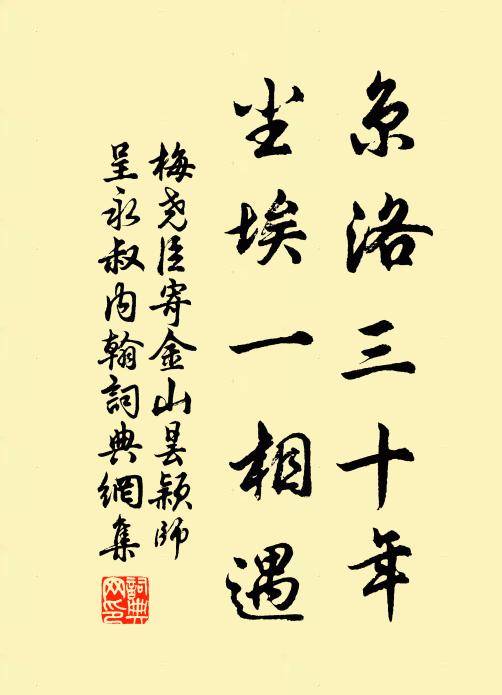 京洛三十年
尘埃一相遇
梅尧臣寄金山昙颖师
呈永叔内翰詞典網集